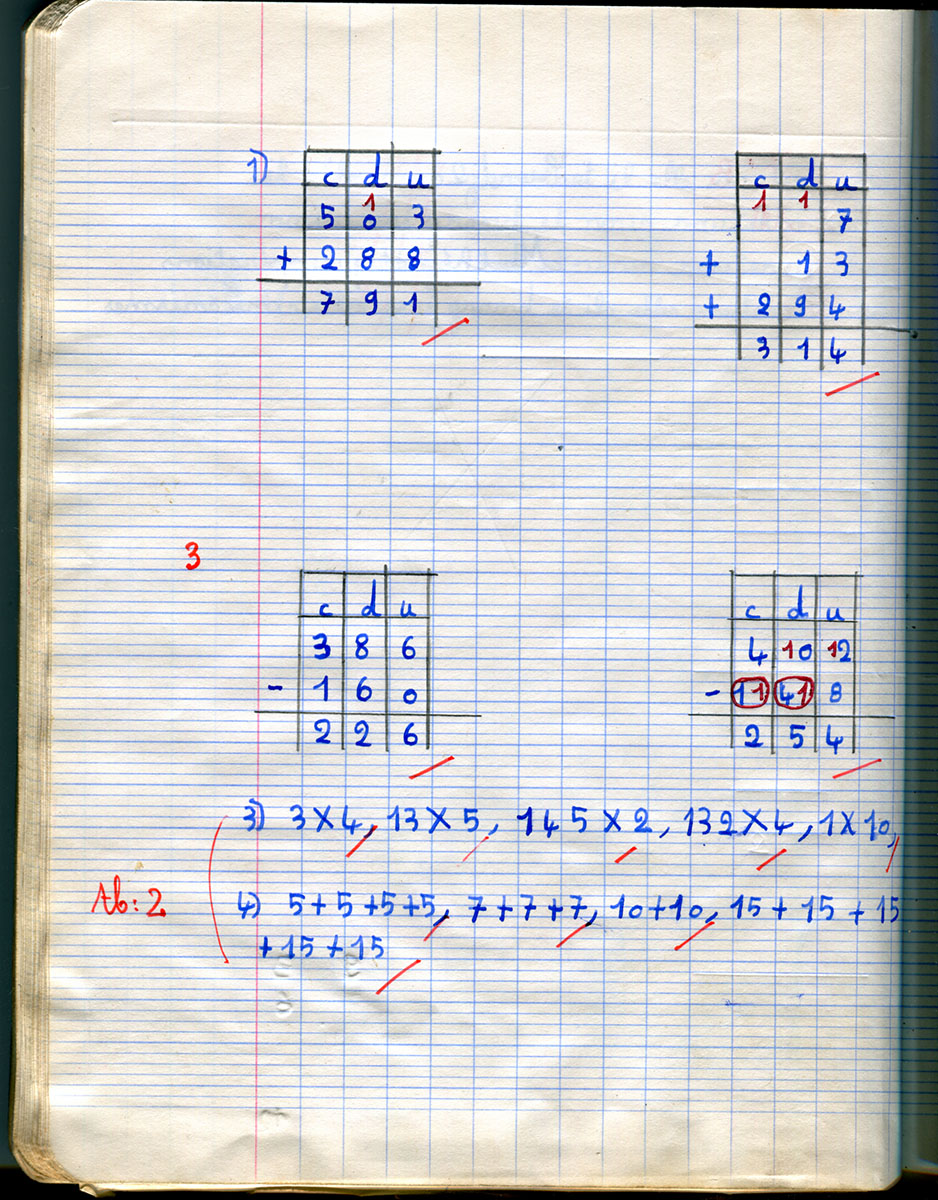 1) c d u c d u
1 1 1
5 0 3 7
+ 2 8 8 + 1 3
7 9 1 + 2 9 4
3 1 4
3
c d u c d u
3 8 6 4 10 12
- 1 6 0 - 11 41 8
2 2 6 2 5 4
3) 3 X 4, 13 X 5, 145 X 2, 132 X 4, 1 X 10,
Ab: 2 4) 5 + 5 + 5 + 5, 7 + 7 + 7, 10 + 10, 15 + 15 + 15
+ 15 + 15